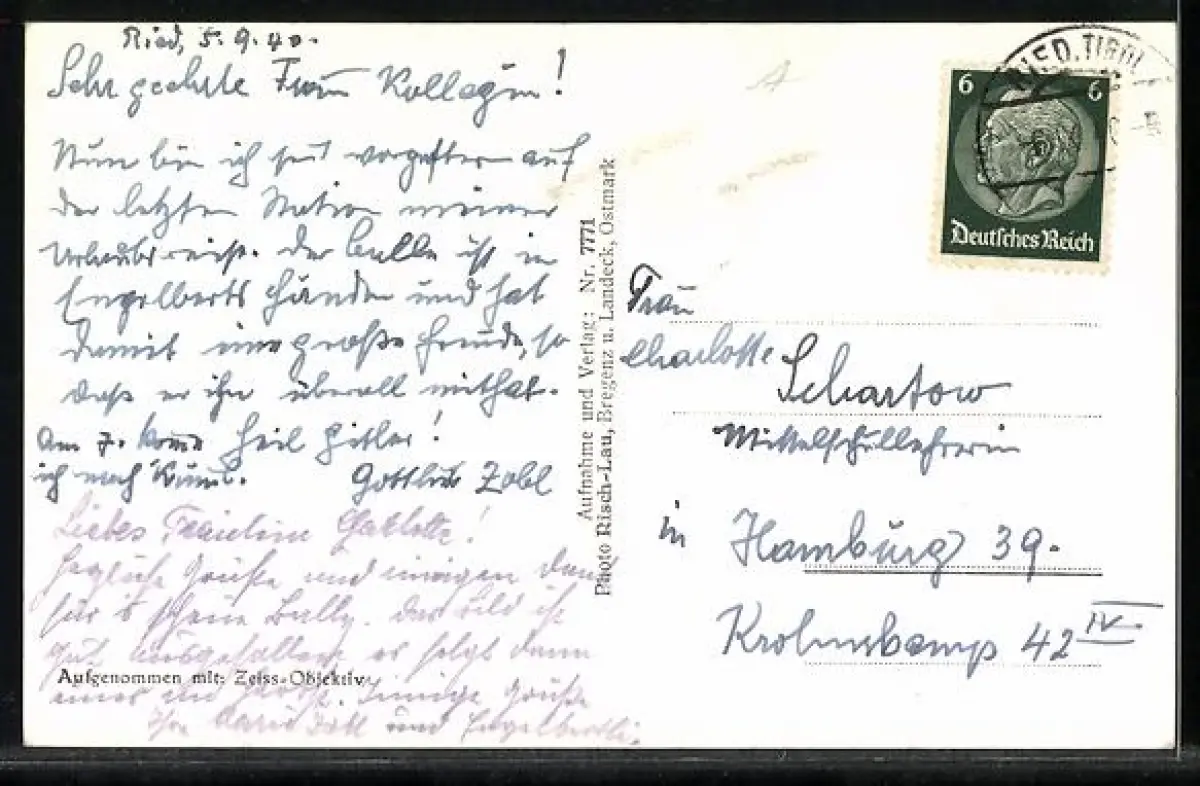 Ried, 5.9.40.
Sehr geehrte Frau Kollegin!
Nun bin ich seit vorgestern auf
der letzten Station meiner
Urlaubsreise. Der Bulle ist in
Engelberts Händen und hat
damit eine große Freude, so
daß er ihn überall mithat.
Am 7. komme Heil Hitler!
ich nach
Gottlieb Zobl
Liebes Fräulein Charlotte!
Herzliche Grüße und innigen Dank
für 's schöne Bully. Das Bild ist
gut ausgefallen es folgt dann
eines in Größe. Innige Grüße
Ihre Marie Zobl und Engelbertli.
Aufgenommen mit: Zeiss-Objektiv
Aufnahme und Verlag: Nr. 7771
Photo Risch-Lau, Bregenz u. Landeck, Ostmark
RIED. TIROL
6 6
Deutsches Reich
Frau
Charlotte Schartow
Mittelschullehrerin
in Hamburg 39.
Krohnskamp 42 IV.